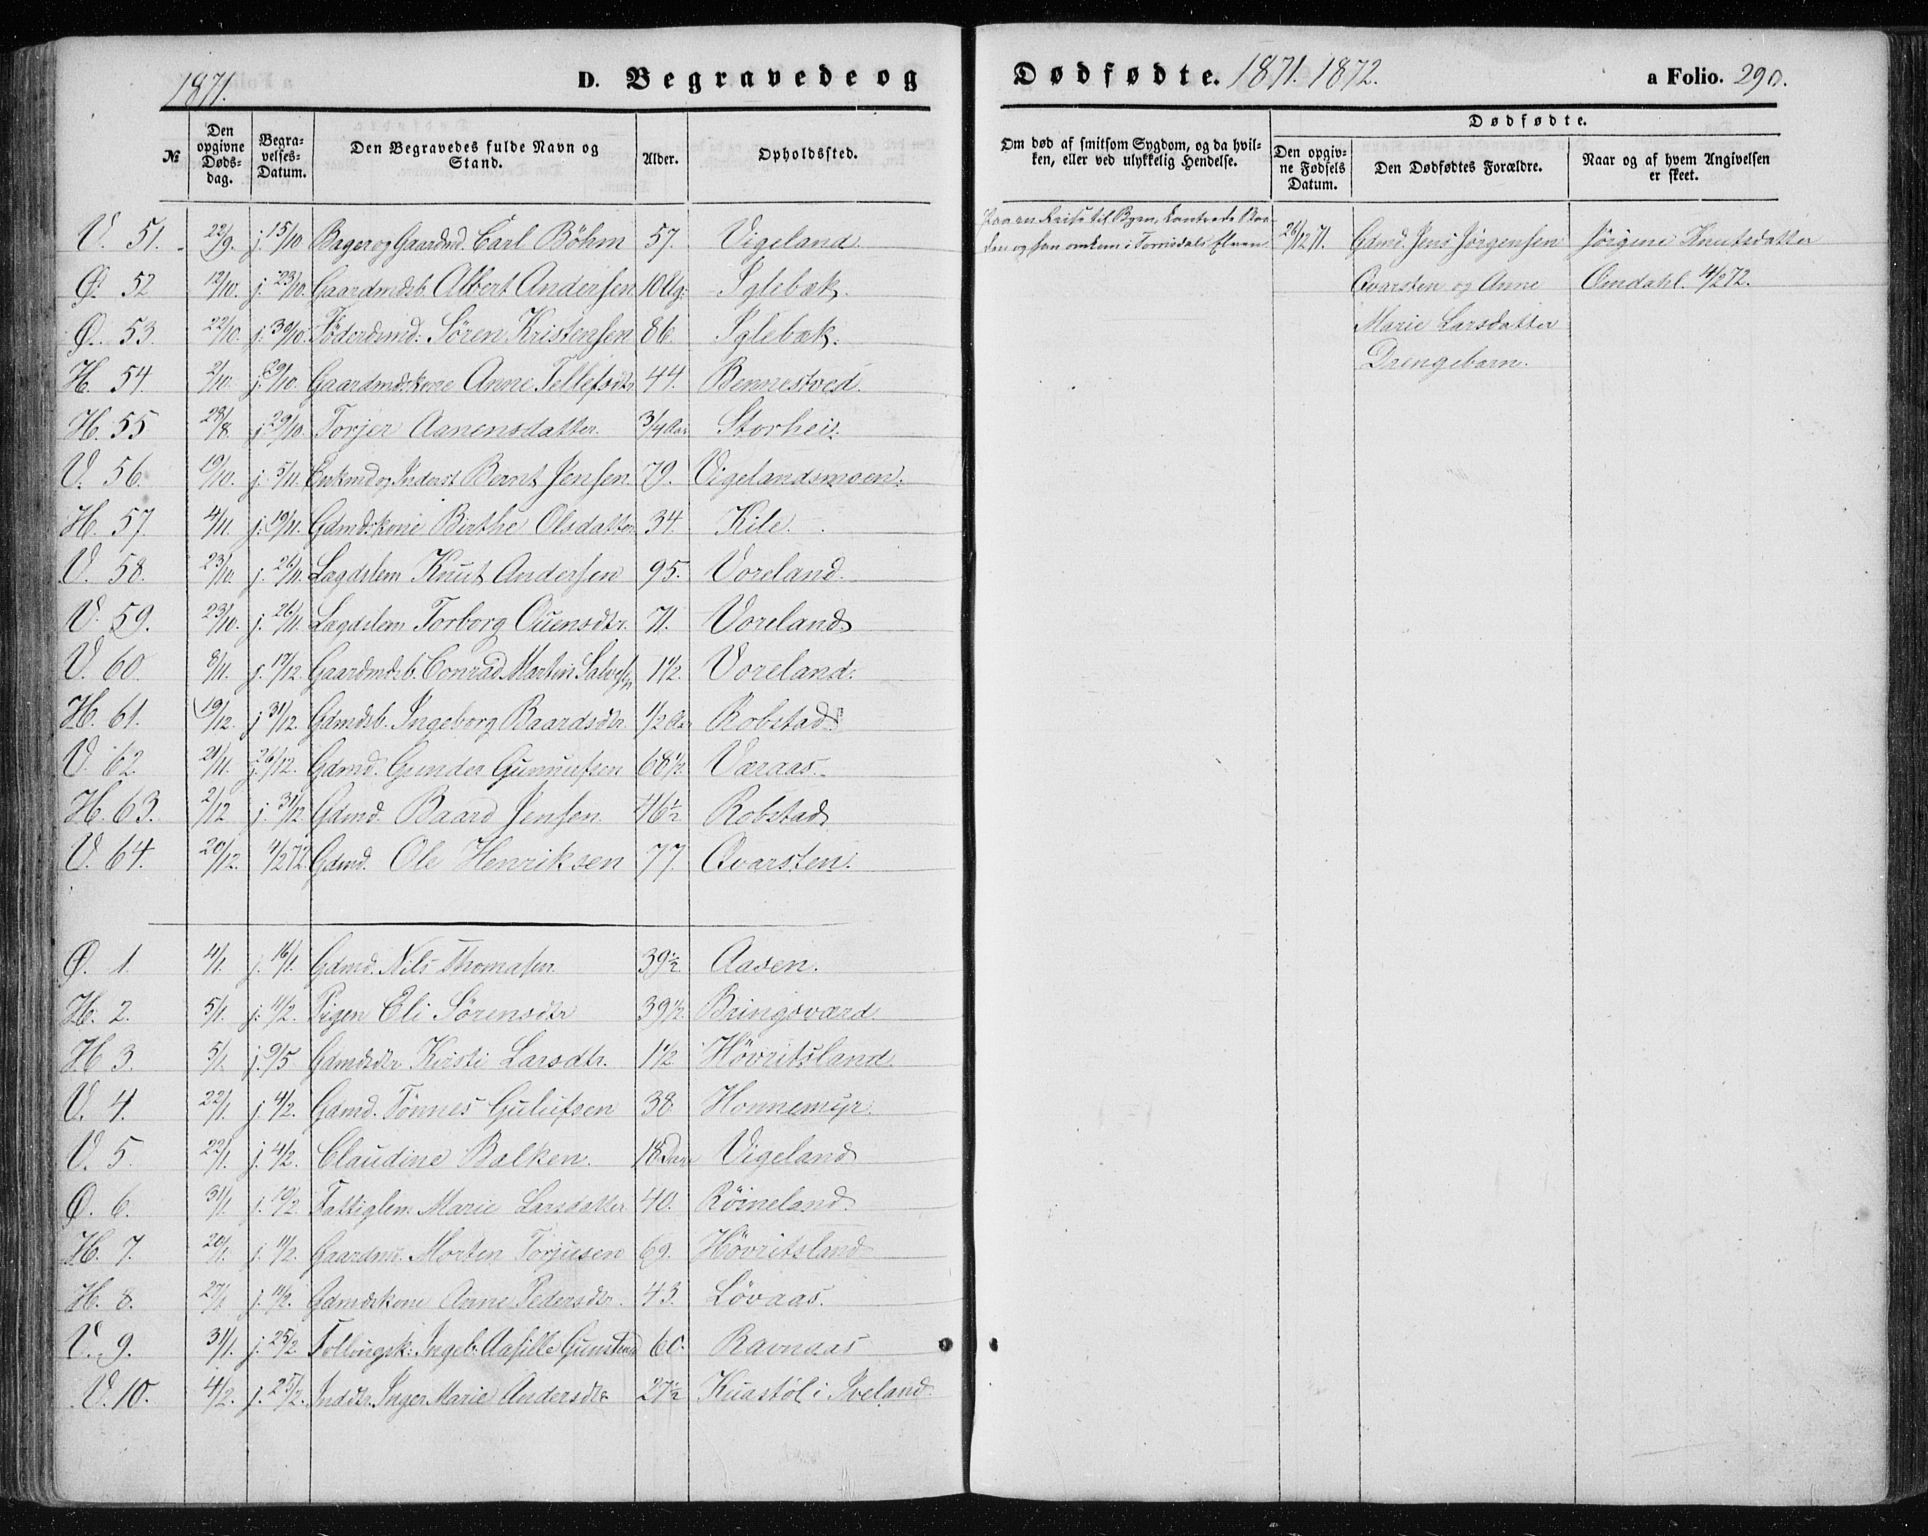 1871.
D. Begravede og
Dødfødte. 1871. 1872.
a Folio. 290.
№
Den opgivne Døds-dag.
Begra-velses-Datum.
Den Begravedes fulde Navn og Stand.
Alder.
Opholdssted.
Om død af smitsom Sygdom, og da hvil-ken, eller ved ulykkelig Hendelse.
Dødfødte.
Den opgiv-ne Fødsels Datum.
Den Dødfødtes Forældre.
Naar og af hvem Angivelsen er skeet.
V. 51. 22/9. j. 15/10 Bager og Gaardmd. Carl Böhm 57. Vigeland
Ø. 52 12/10. j. 23/10. Gaardmdsb. Albert Andersen 10 Ug. Iglebæk.
Ø. 53. 22/10 j. 30/10. Föderdsmd: Sören Kristensen 86. Iglebæk.
H. 54. 2/10. j. 29/10. Gaardmdskone Anne Tellefsdtr 44. Bennestved.
H. 55 28/8. j. 29/10. Torjer Aanensdatter. 3/4 Aar Storhei.
V. 56. 19/10. j. 5/11. Enkmd og Inderst Bernt Jensen. 79. Vigelandsmoen.
H. 57. 4/11. j. 19/11. Gdmdskone Birthe Olsdatter 34. Kile.
V. 58. 23/10. j. 26/11. Lægdslem Knut Andersen 95. Voreland.
V. 59. 23/10. j. 26/11. Lægdslem Torborg Ouensdtr. 71. Voreland
V. 60. 8/11. j. 17/12 Gaardmdsb. Conrad Martin 1 1/2. Voreland.
H. 61. 19/12. j. 31/12. Gdmdsb. Ingeborg Baardsdtr. 1/2 Aar Robstad
V. 62 21/11. j. 26/12. Gdmd. Gunder Gunnufsen 68 1/2. Væraas.
H. 63. 2/12 j. 31/12 Gdmd. Baard Jensen. 46 1/2 Robstad
V. 64. 20/12. 4/2 72. Gdmd. Ole Henriksen 77. Qvarsten.
Ø. 1. 4/1. j. 16/1. Gdmd. Nils Thomasen 39 1/2 Aasen.
H. 2. 5/1. j. 4/2. Pigen Eli Sörensdtr 39 1/2. Bringsværd.
H. 3. 5/1. j. 9/5. Gdmdsdtr Kirsti Larsdtr. 1 1/2 Hövritsland
V. 4. 22/1. j. 4/2. Gdmd. Tönnes Gulufsen 38 Honnemyr.
V. 5. 22/1. j. 4/2. Claudine Balken. 18 Dage Vigeland
Ø. 6. 31/1. j. Fattiglem Marie Larsdatter 40. Röineland
H. 7. 20/1. j. 11/2. Gaardmd. Morten Torjusen 69. Hövritsland
H. 8. 27/1 j. 11/2. Gdmdskone Anne Pedersdtr. 43. Lövaas.
V. 9. 31/1. j. 25/2. Ingeb. Aasille 60. Ravnaas
V. 10. 4/2. j. 25/2. Inger Marie Andersdtr 27 1/2 Kuastöl i Iveland.
Paa en Reise til Byen, kantrede Baa-
den og han omkom i Torrisdals Elven
26/12 71. Gdmd. Jens Jörgensen
Qvarsten og Anne
Marie Larsdatter
Drengebarn.
Jörgine Knutsdatter
Omdahl. 4/2 72.